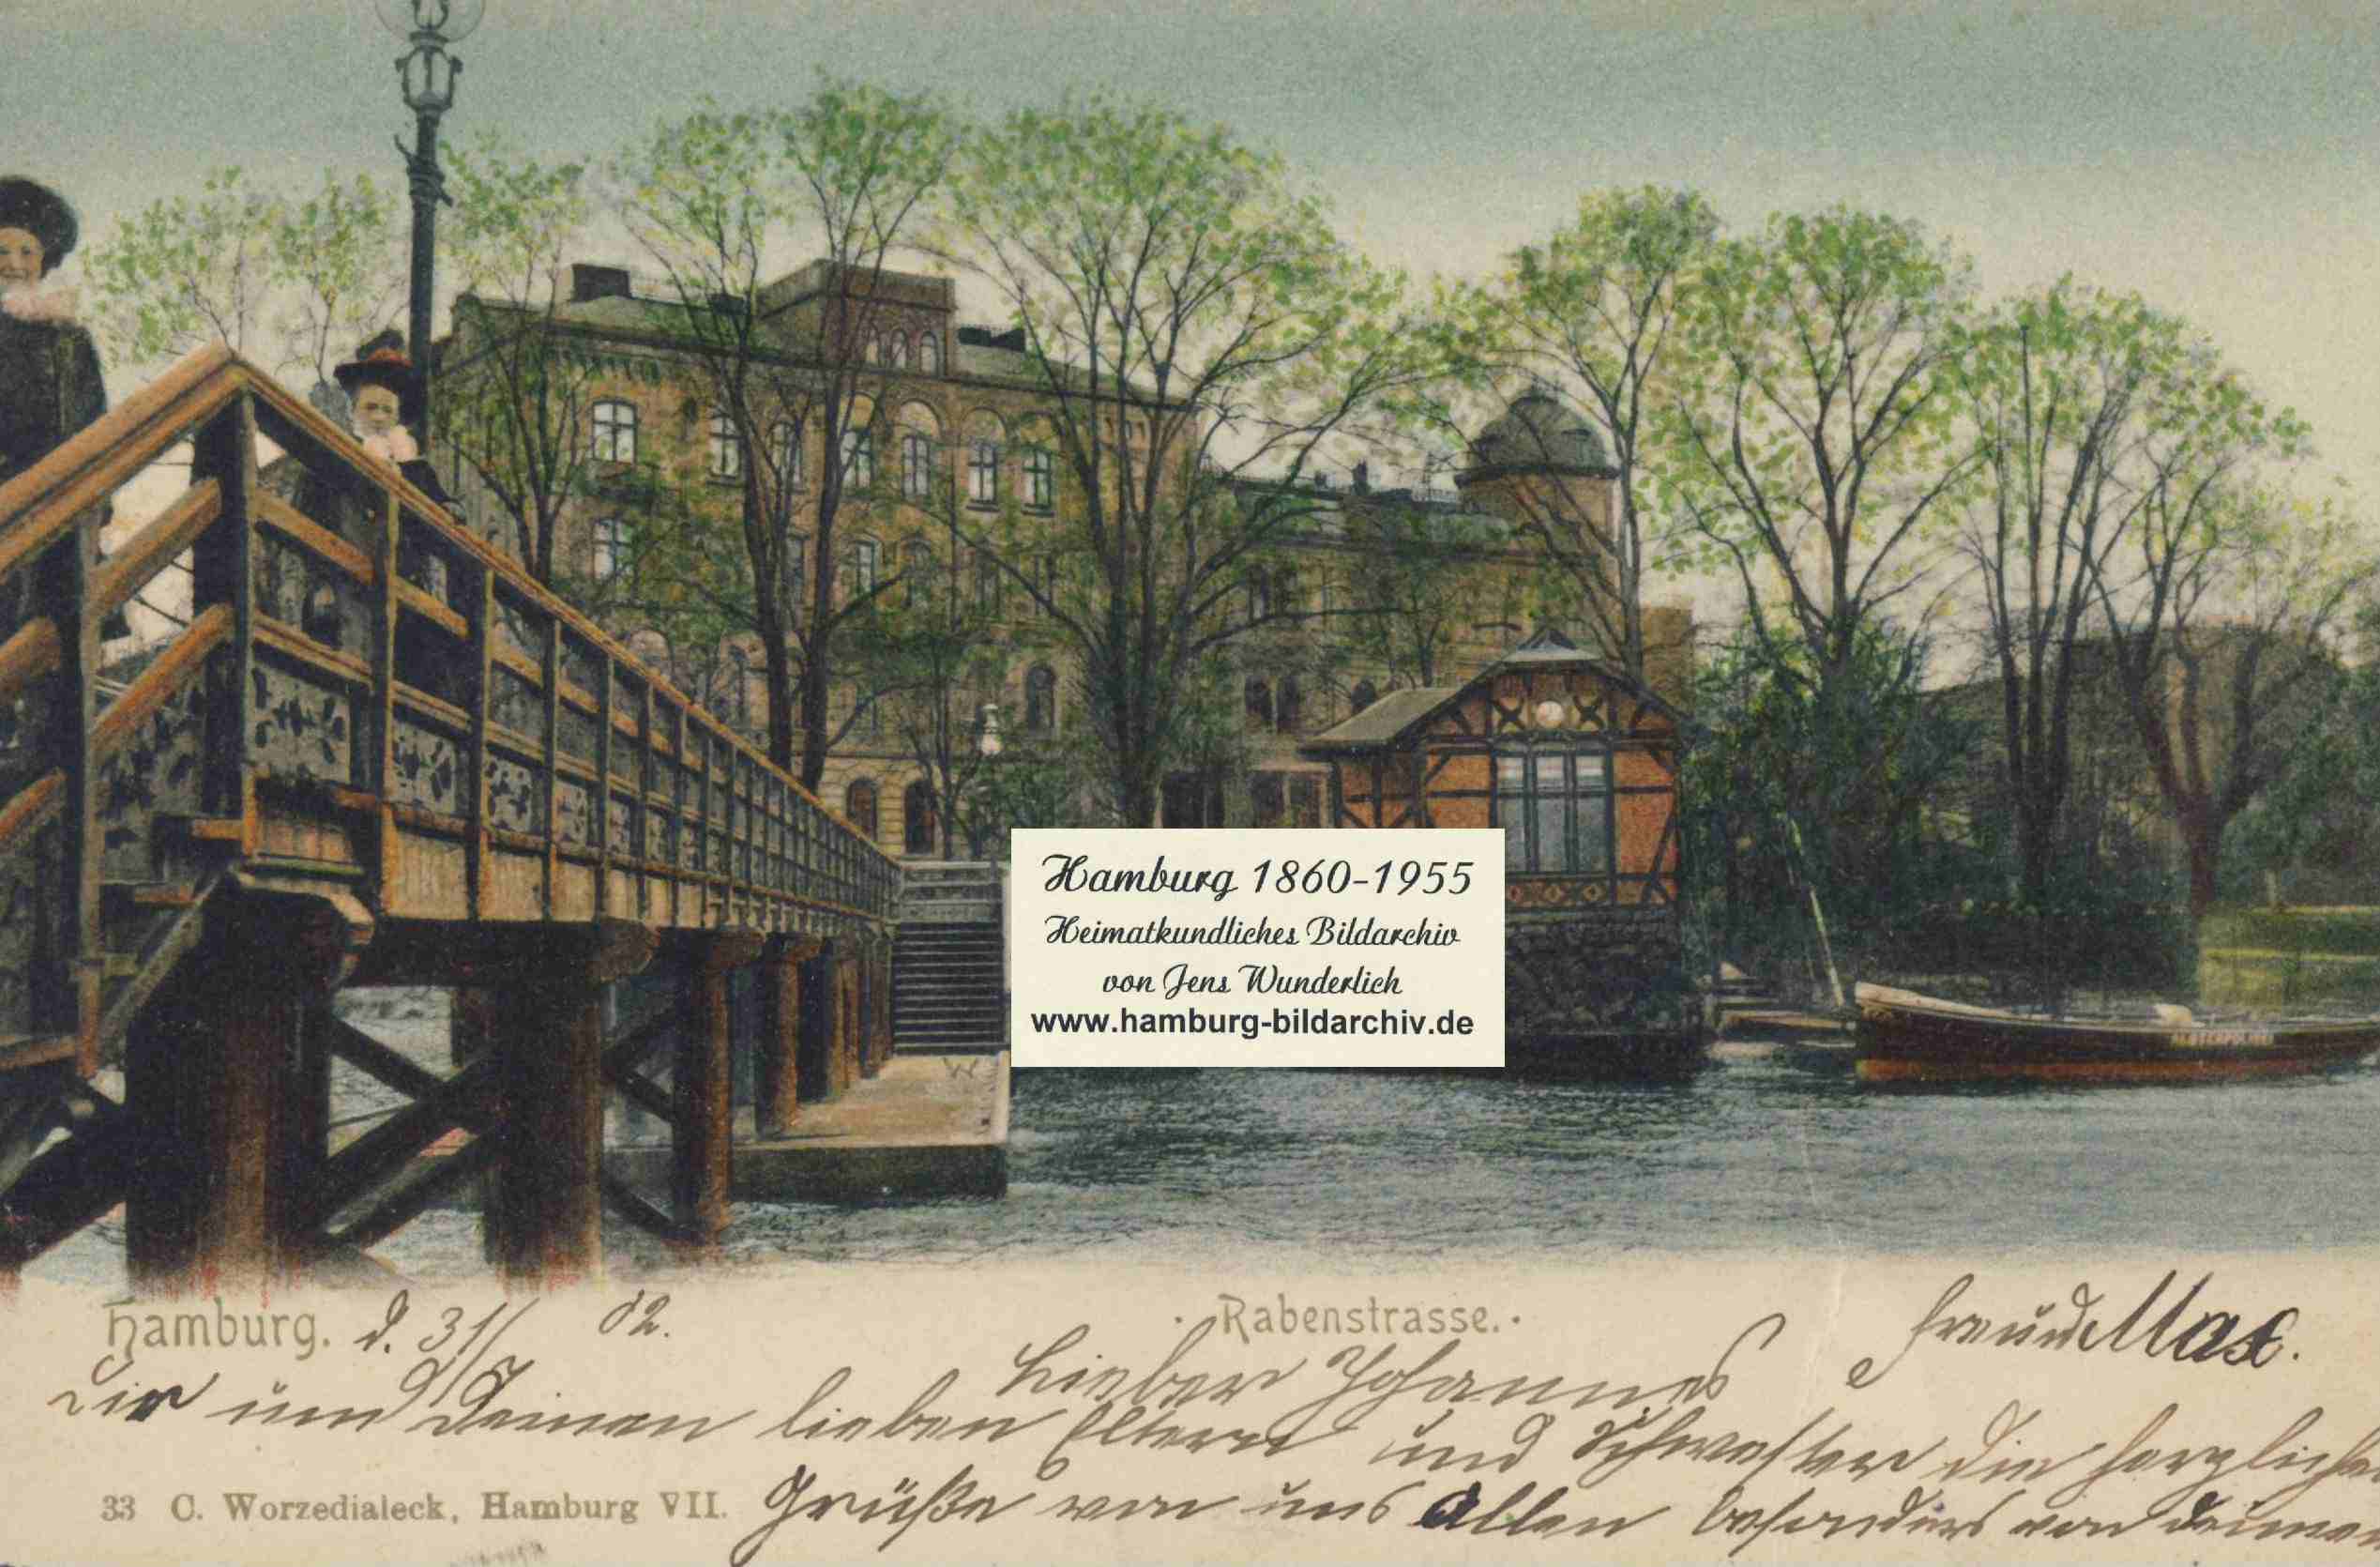 Hamburg 1860-1955
Heimatkundliches Bildarchiv
von Jens Wunderlich
www.hamburg-bildarchiv.de
Hamburg. d. 31/ 02.
· Rabenstrasse. ·
Lieber Johannes
Dir und Deinen lieben Eltern und Schwester die herzlichsten
Grüße von uns Allen besonders von Deinem
Freund Max.
33 C. Worzedialeck, Hamburg VII.